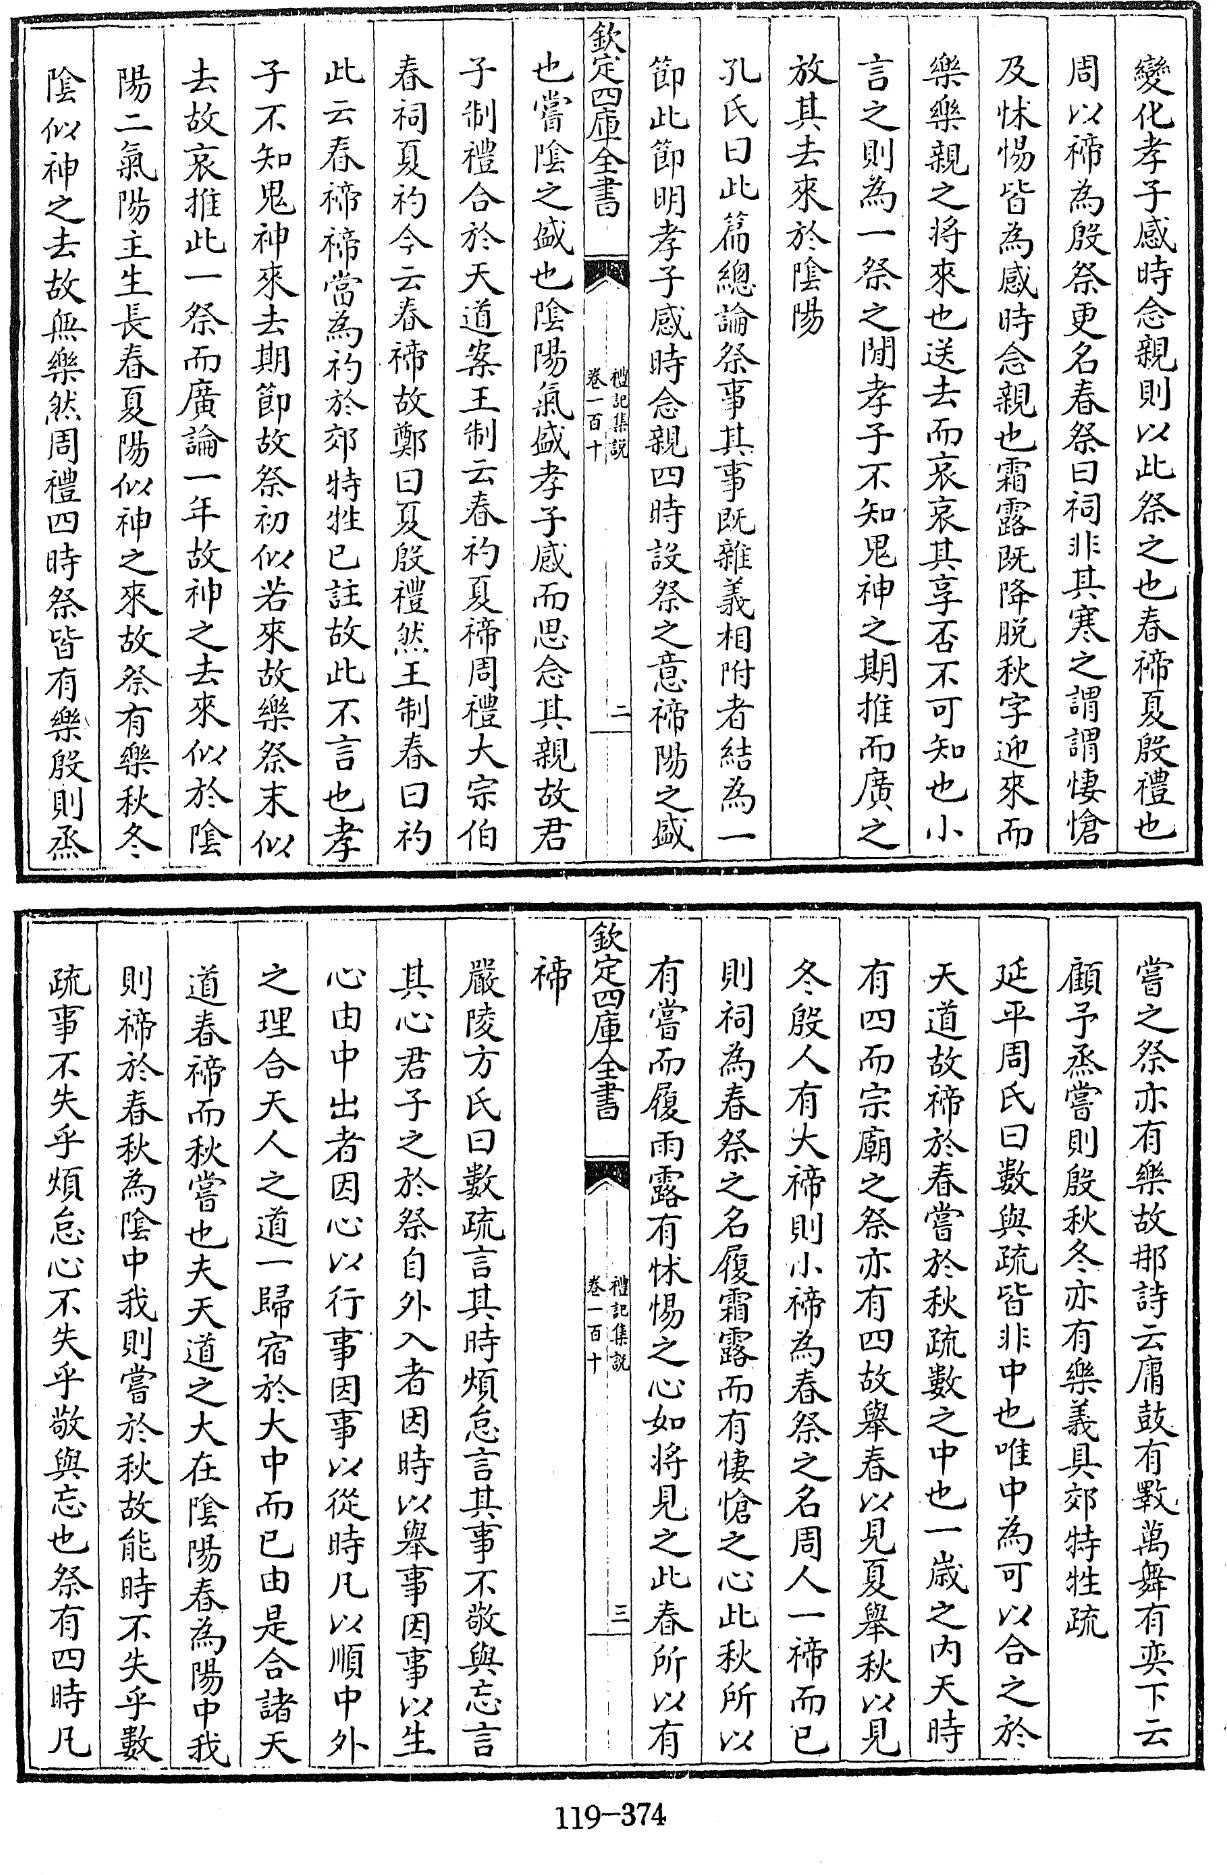 變化孝子感時念親則以此祭之也春禘夏殷禮也
周以禘為殷祭更名春祭曰祠非其寒之謂謂悽愴
及怵惕皆為感時念親也霜露既降脱秋字迎來而
樂樂親之将來也送去而哀哀其享否不可知也小
言之則為一祭之間孝子不知鬼神之期推而廣之
放其去來於陰陽
孔氏曰此篇總論祭事其事既雜義相附者結為一
節此節明孝子感時念親四時設祭之意禘陽之盛
欽定四庫全書
禮記集説
卷一百十
二
也嘗陰之盛也陰陽氣盛孝子感而思念其親故君
子制禮合於天道案王制云春礿夏禘周禮大宗伯
春祠夏礿今云春禘故鄭曰夏殷禮然王制春曰礿
此云春禘禘當為礿於郊特牲已註故此不言也孝
子不知鬼神來去期節故祭初似若來故樂祭末似
去故哀推此一祭而廣論一年故神之去來似於陰
陽二氣陽主生長春夏陽似神之來故祭有樂秋冬
陰似神之去故無樂然周禮四時祭皆有樂殷則烝
嘗之祭亦有樂故那詩云庸鼓有斁萬舞有奕下云
顧予烝嘗則殷秋冬亦有樂義具郊特牲疏
延平周氏曰數與疏皆非中也唯中為可以合之於
天道故禘於春嘗於秋疏數之中也一歳之内天時
有四而宗廟之祭亦有四故舉春以見夏舉秋以見
冬殷人有大禘則小禘為春祭之名周人一禘而已
則祠為春祭之名履霜露而有悽愴之心此秋所以
有嘗而履雨露有怵惕之心如將見之此春所以有
欽定四庫全書
禮記集説
卷一百十
三
禘
嚴陵方氏曰數疏言其時煩怠言其事不敬與忘言
其心君子之於祭自外入者因時以舉事因事以生
心由中出者因心以行事因事以從時凡以順中外
之理合天人之道一歸宿於大中而已由是合諸天
道春禘而秋嘗也夫天道之大在陰陽春為陽中我
則禘於春秋為陰中我則嘗於秋故能時不失乎數
疏事不失乎煩怠心不失乎敬與忘也祭有四時凡
119-374